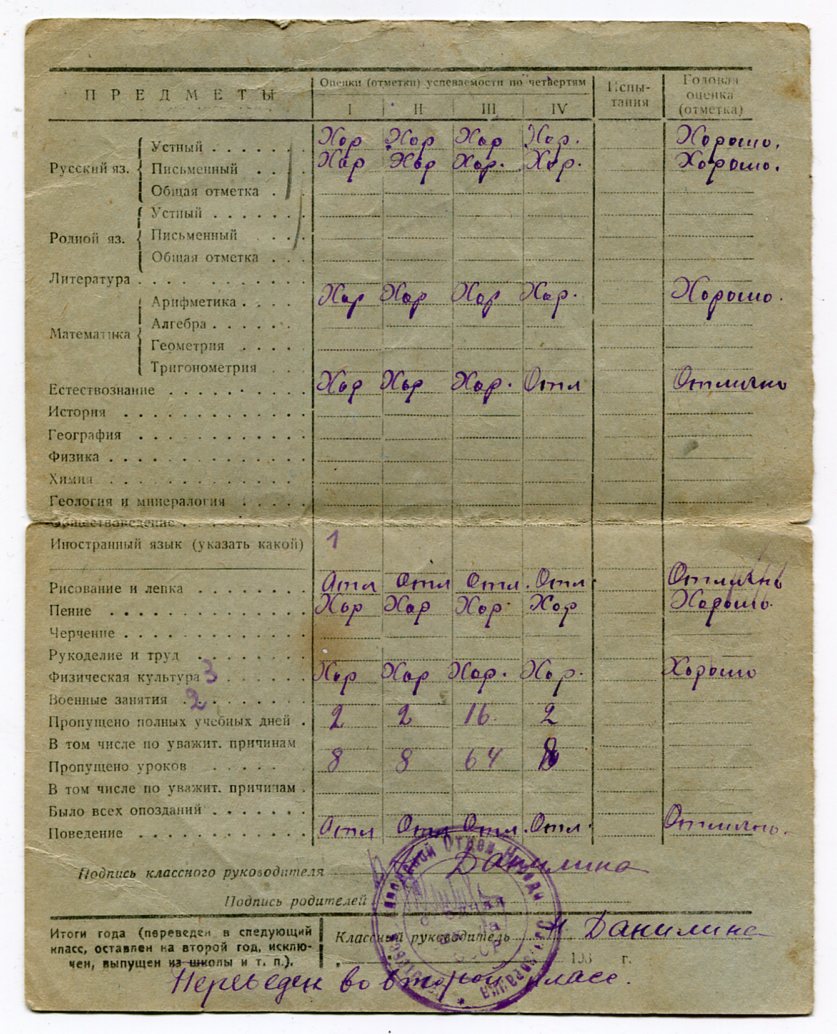 ПРЕДМЕТЫ Оценки (отметки) успеваемости по четвертям Испытания Годовая оценка (отметка)
I II III IV
Русский яз. Устный Хор Хор Хор Хор. Хорошо.
Письменный Хор Хор Хор. Хор. Хорошо.
Общая отметка
Родной яз. Устный
Письменный
Общая отметка
Литература
Математика Арифметика Хор Хор Хор Хор. Хорошо.
Алгебра
Геометрия
Тригонометрия
Естествознание Хор Хор Хор. Отл Отлично
История
География
Физика
Химия
Геология и минералогия
Обществоведение
Иностранный язык (указать какой) 1
Рисование и лепка Отл Отл Отл. Отл. Отлично
Пение Хор Хор Хор. Хор Хорошо.
Черчение
Рукоделие и труд
Физическая культура 3 Хор Хор Хор. Хор. Хорошо
Военные занятия 2
Пропущено полных учебных дней 2 2 16. 2
В том числе по уважит. причинам
Пропущено уроков 8 8 64 8
В том числе по уважит. причинам
Было всех опозданий
Поведение Отл Отл Отл. Отл. Отлично.
Подпись классного руководителя Данилина
Подпись родителей
Итоги года (переведен в следующий класс, оставлен на второй год, исключен, выпущен из школы и т. п.).
Классный руководитель Н Данилина
193 г.
Переведен во второй класс.